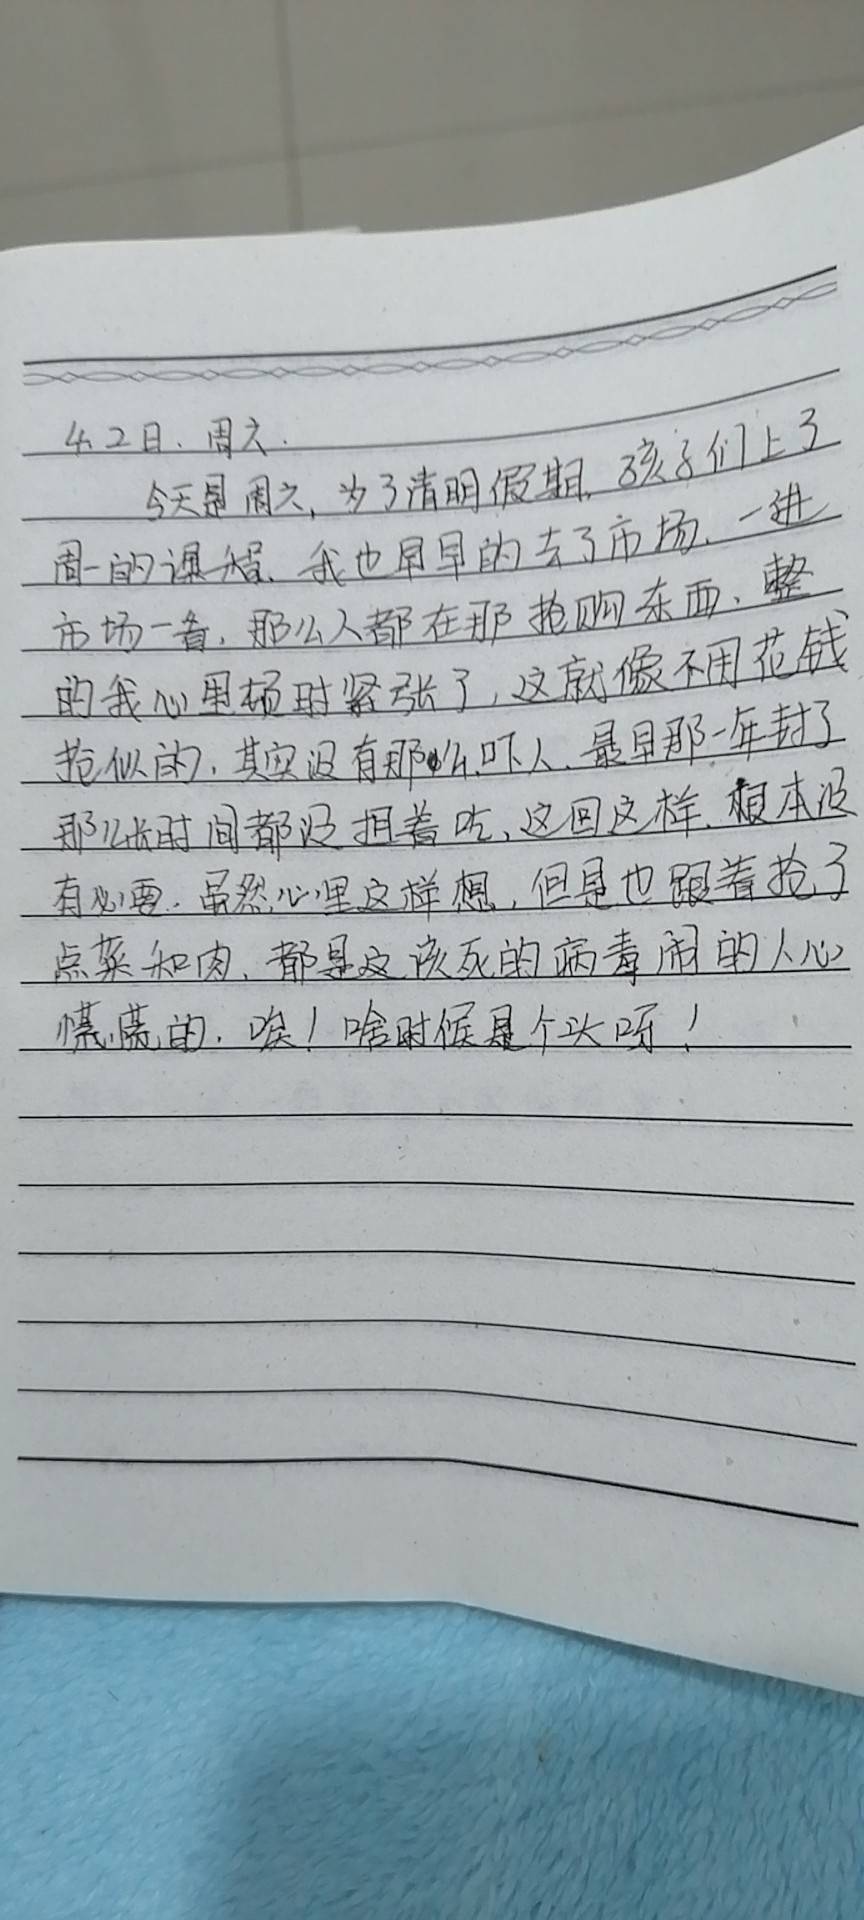 4.2日.周六.
今天是周六,为了清明假期,孩子们上了
周一的课程.我也早早的去了市场.一进
市场一看,那么人都在那抢购东西、整
的我心里顿时紧张了,这就像不用花钱
抢似的,其实没有那么吓人.最早那一年封了
那么长时间都没担着吃、这回这样.根本没
有必要.虽然心里这样想,但是也跟着抢了
点菜和肉、都是这该死的病毒闹的人心
慌慌的.唉!啥时候是个头呀!